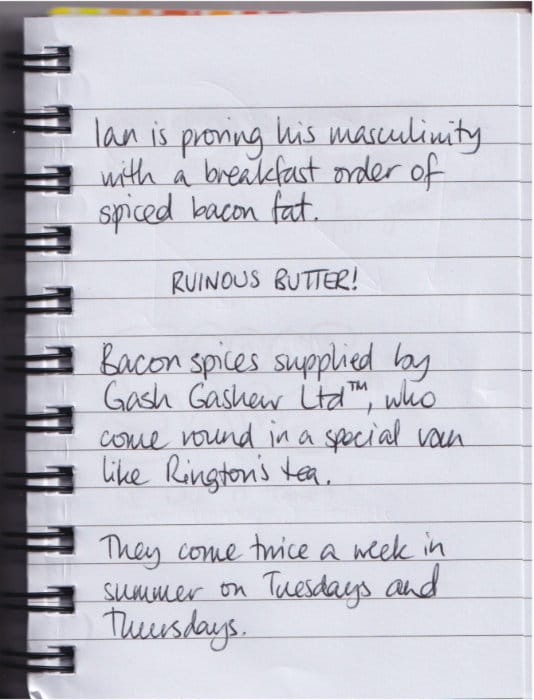 Ian is proving his masculinity
with a breakfast order of
spiced bacon fat.
RUINOUS BUTTER!
Bacon spices supplied by
Gash Gashew Ltd™, who
come round in a special van
like Rington's tea.
They come twice a week in
summer on Tuesdays and
Thursdays.